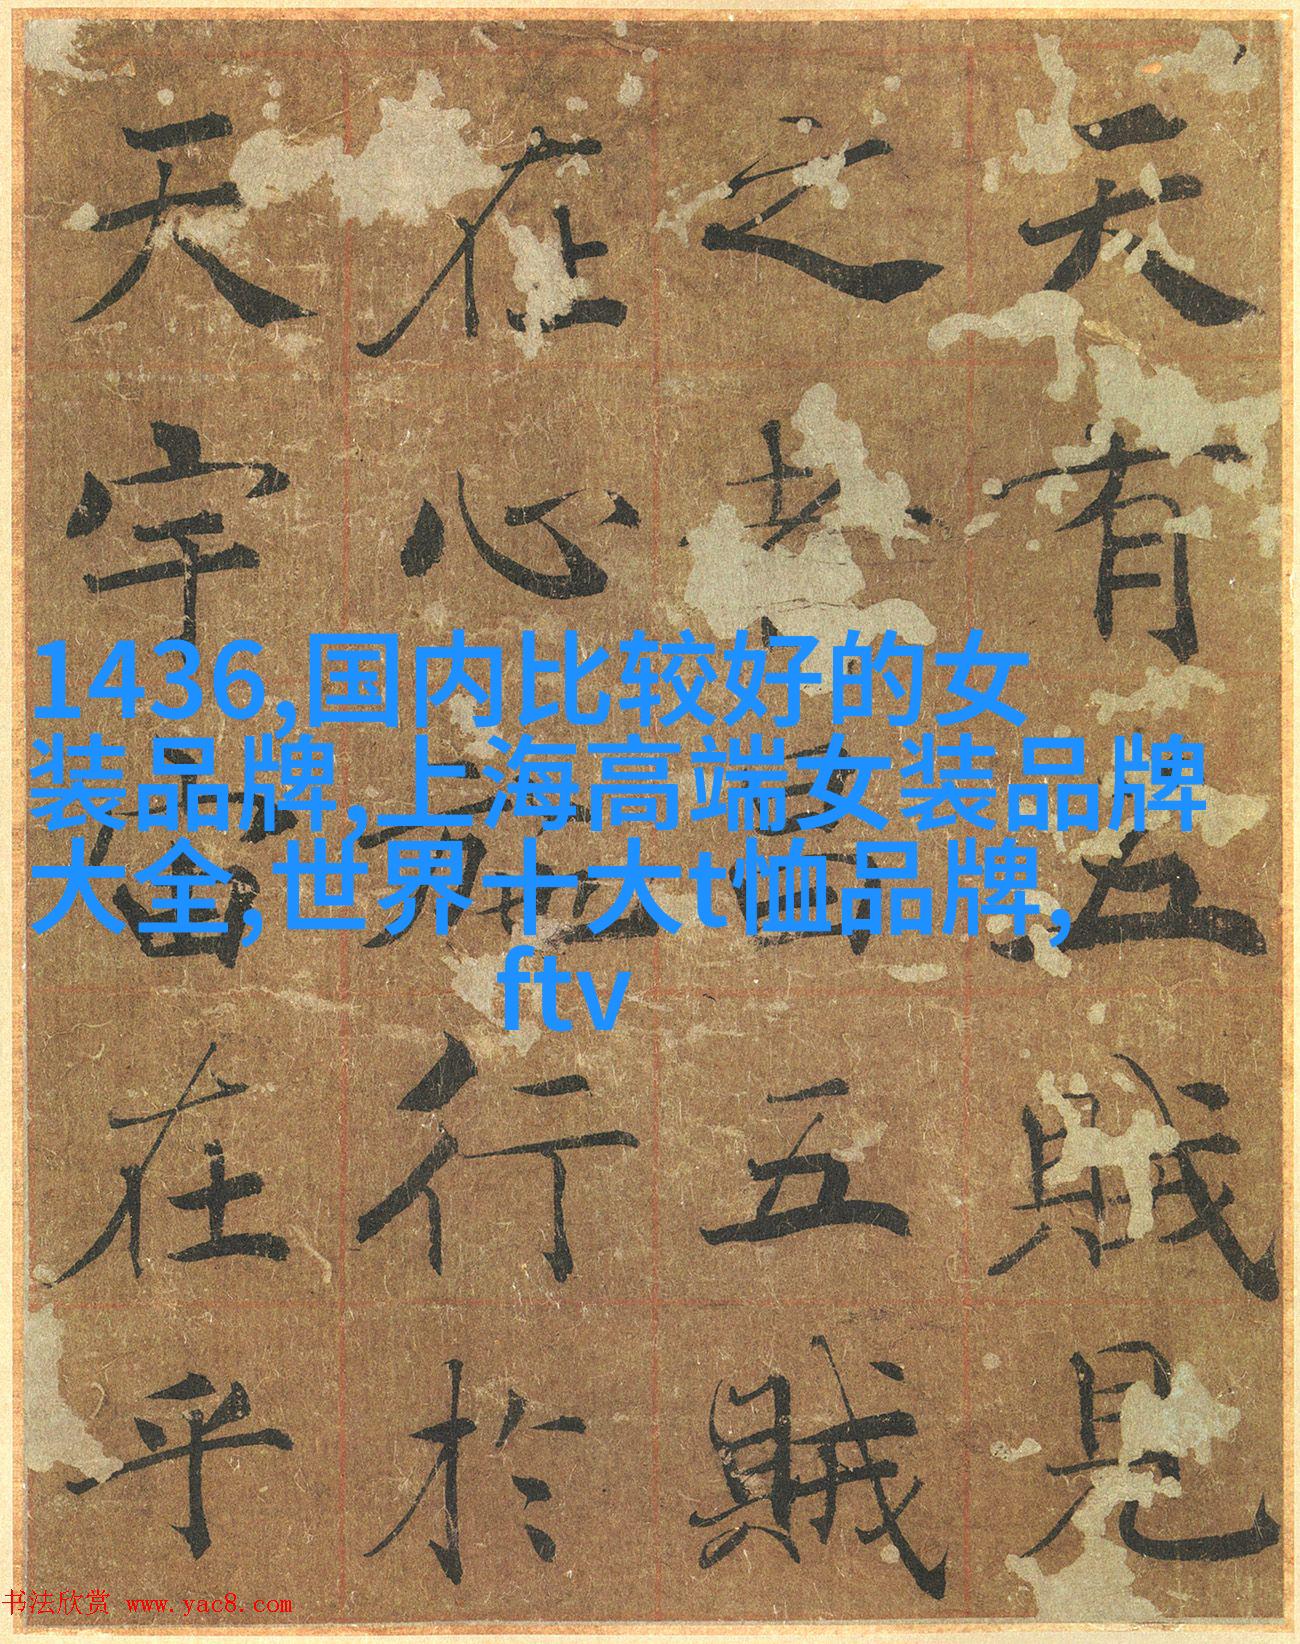 天有五賊見
之者昌五賊
在心施行於
天宇宙在乎
1436,国内比较好的女
装品牌,上海高端女装品牌
大全,世界十大t恤品牌,
ftv
书法欣赏 www.yac8.com